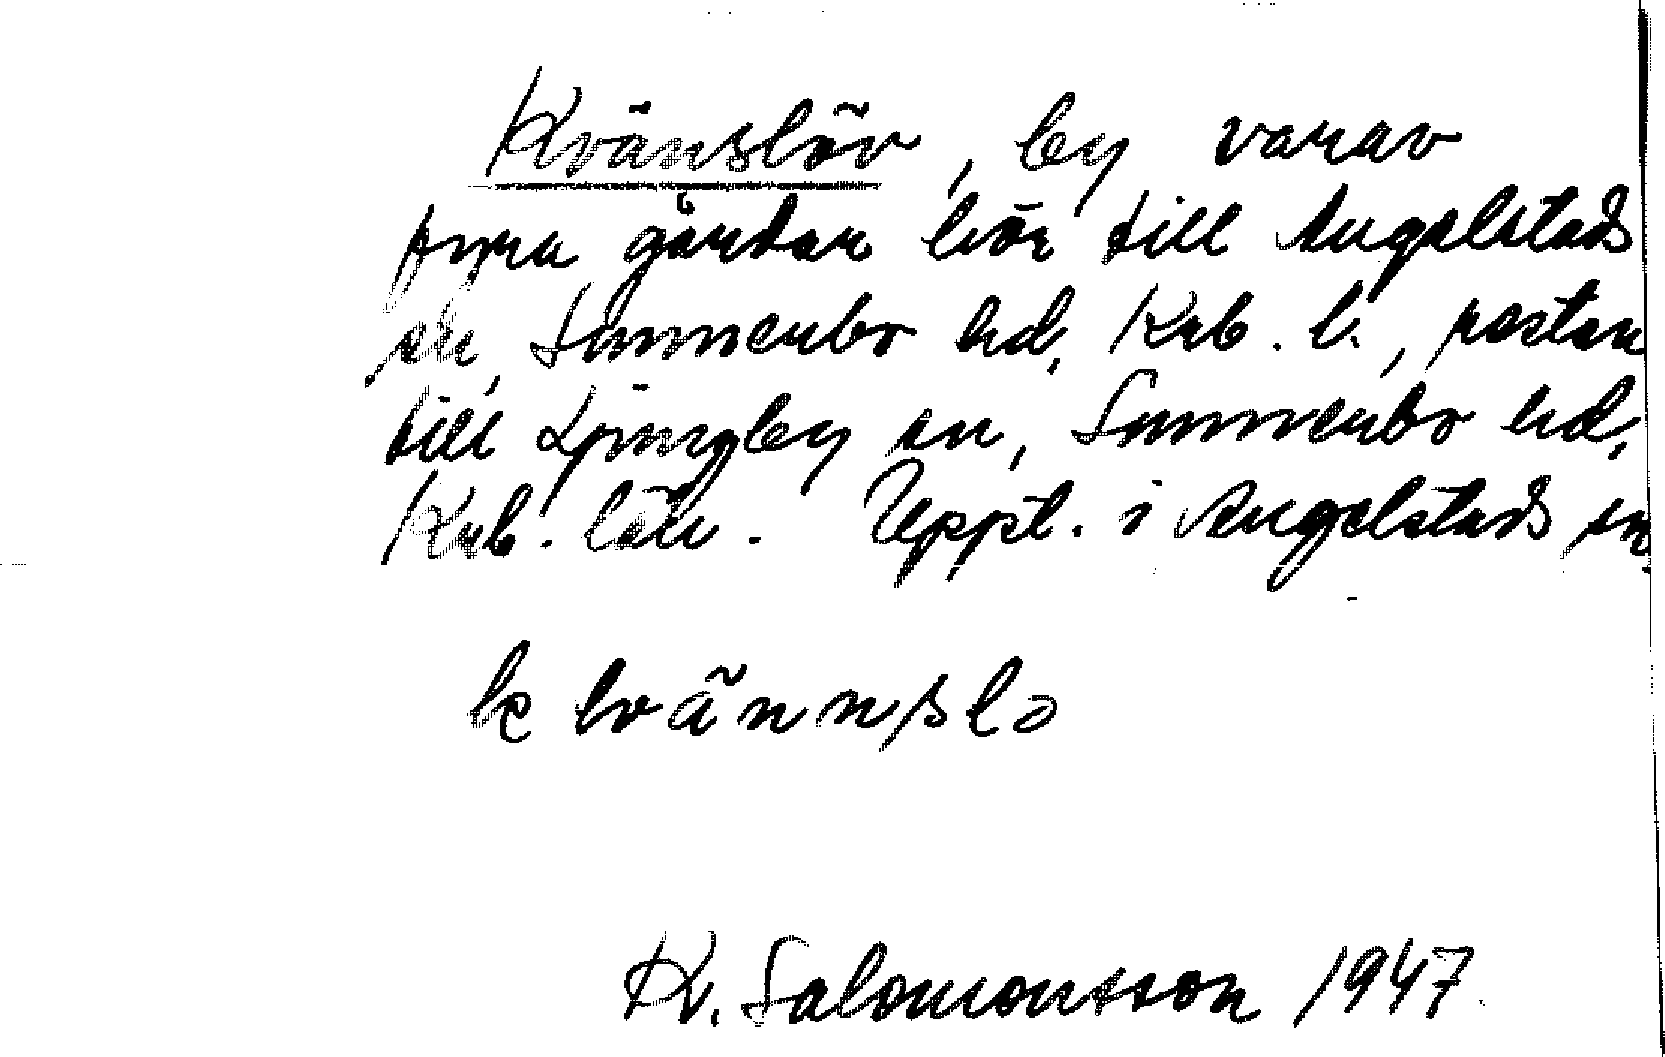 Kvänslöv, by varav
fyra gårdar hör till Angelstads
sn, Sunnerbo hd, Krb. l., resten
till Ljungby sn, Sunnerbo hd,
Krb. län. Uppt. i Angelstads sn
kvännslo
K. Salomonsson 1947